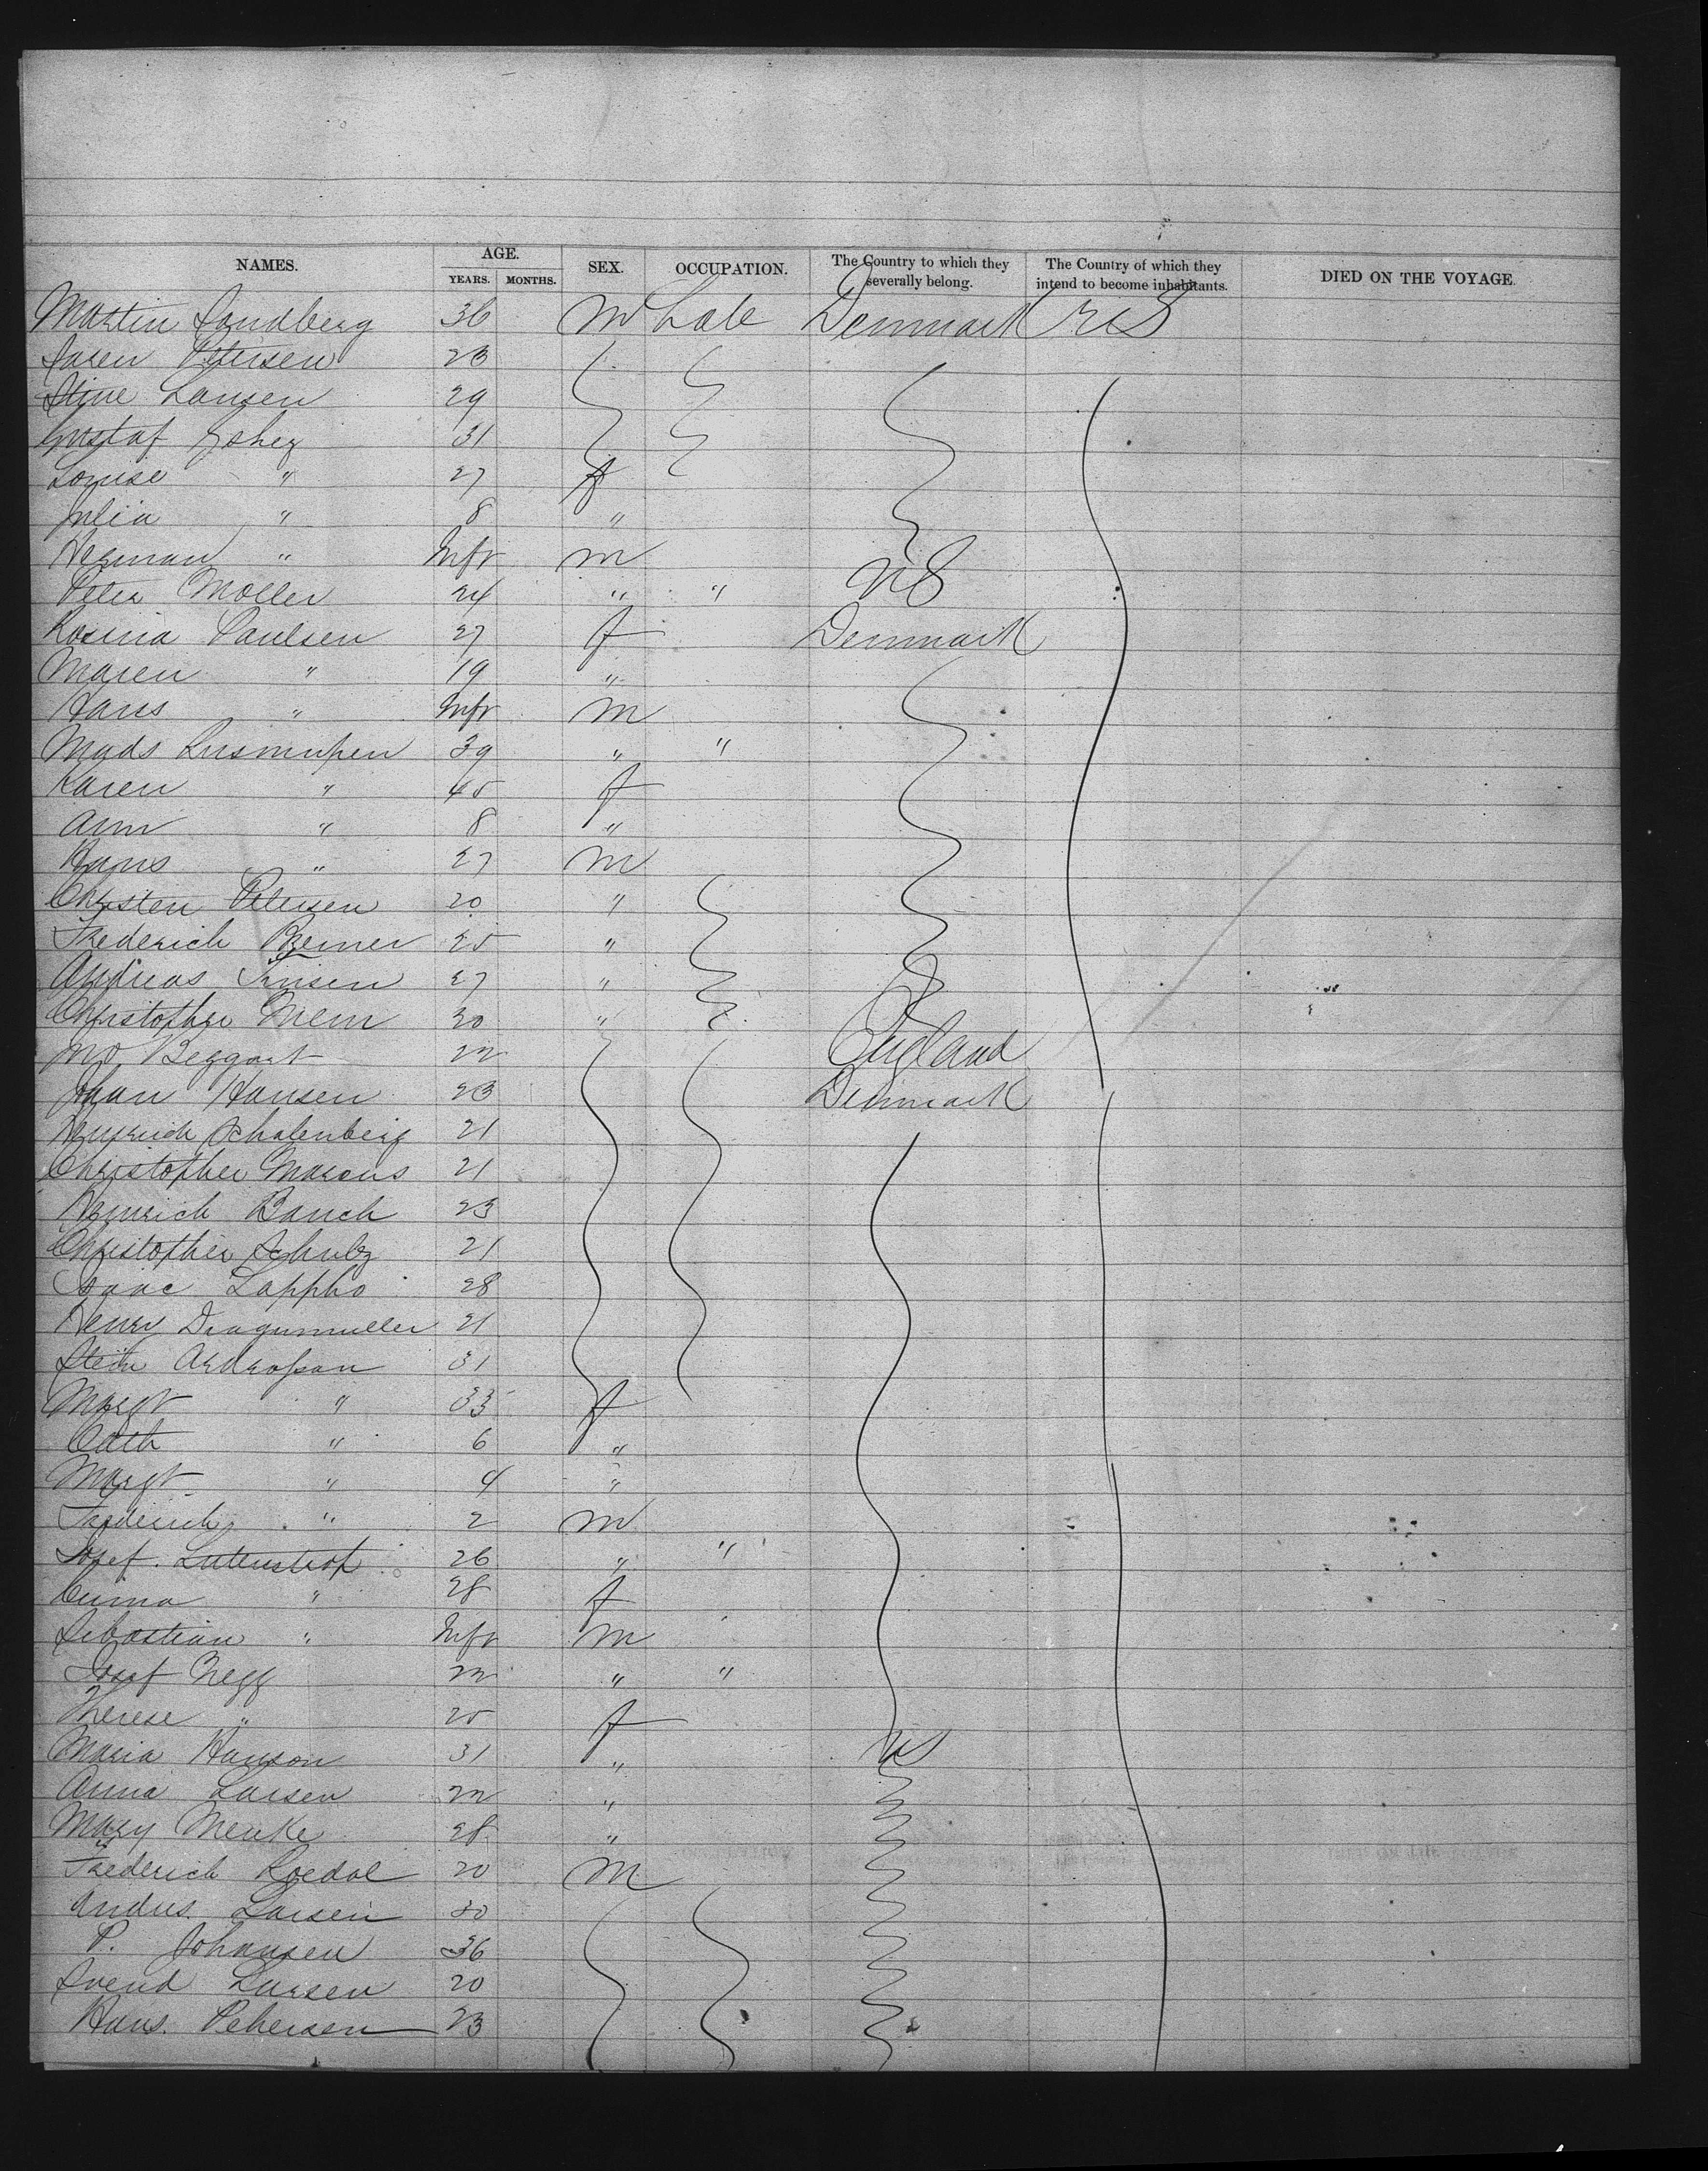 NAMES. AGE. YEARS. MONTHS. SEX. OCCUPATION. The Country to which they severally belong. The Country of which they intend to become inhabitants. DIED ON THE VOYAGE.
Martin Sandberg 36 m Lab Denmark US
Soren Petersen 23
Stine Lansen 29
Gustaf 31
Louise " 27 f
Julia " 8 "
Herman " Inft m
Peter Moller 24 " " US
Rosina Paulsen 27 f Denmark
Maren " 19 "
Hans " Inft m
Mads 39 " "
Karen " 45 f
Ann " 8 "
Hans " 27 m
Christen Petersen 20 "
Frederich Bremer 25 "
Andreas Jensen 27 "
Christopher 30 "
Jno Beggart 22 England
Johan Hansen 23 Denmark
Heinrich Schalenberg 21
Christopher Marcus 21
Heinrich Bauch 23
Christopher Schulz 21
Isaac Lappho 28
Henry Dragumuller 21
Stein 31
Margt " 33 f
Cath " 6 "
Margt " 4 "
Frederich " 2 m
Josef 26 " "
" 28 f
Sebastian " Inft m
Josef Negg 22 " "
Therese " 25 f
Maria Hanson 31 " US
Anna Larsen 22 "
Mary Menke 28 "
Frederich Roedal 20 m
Andrs. Larsen 30
P. Johansen 36
Svend Larsen 20
Hans. Petersen 23